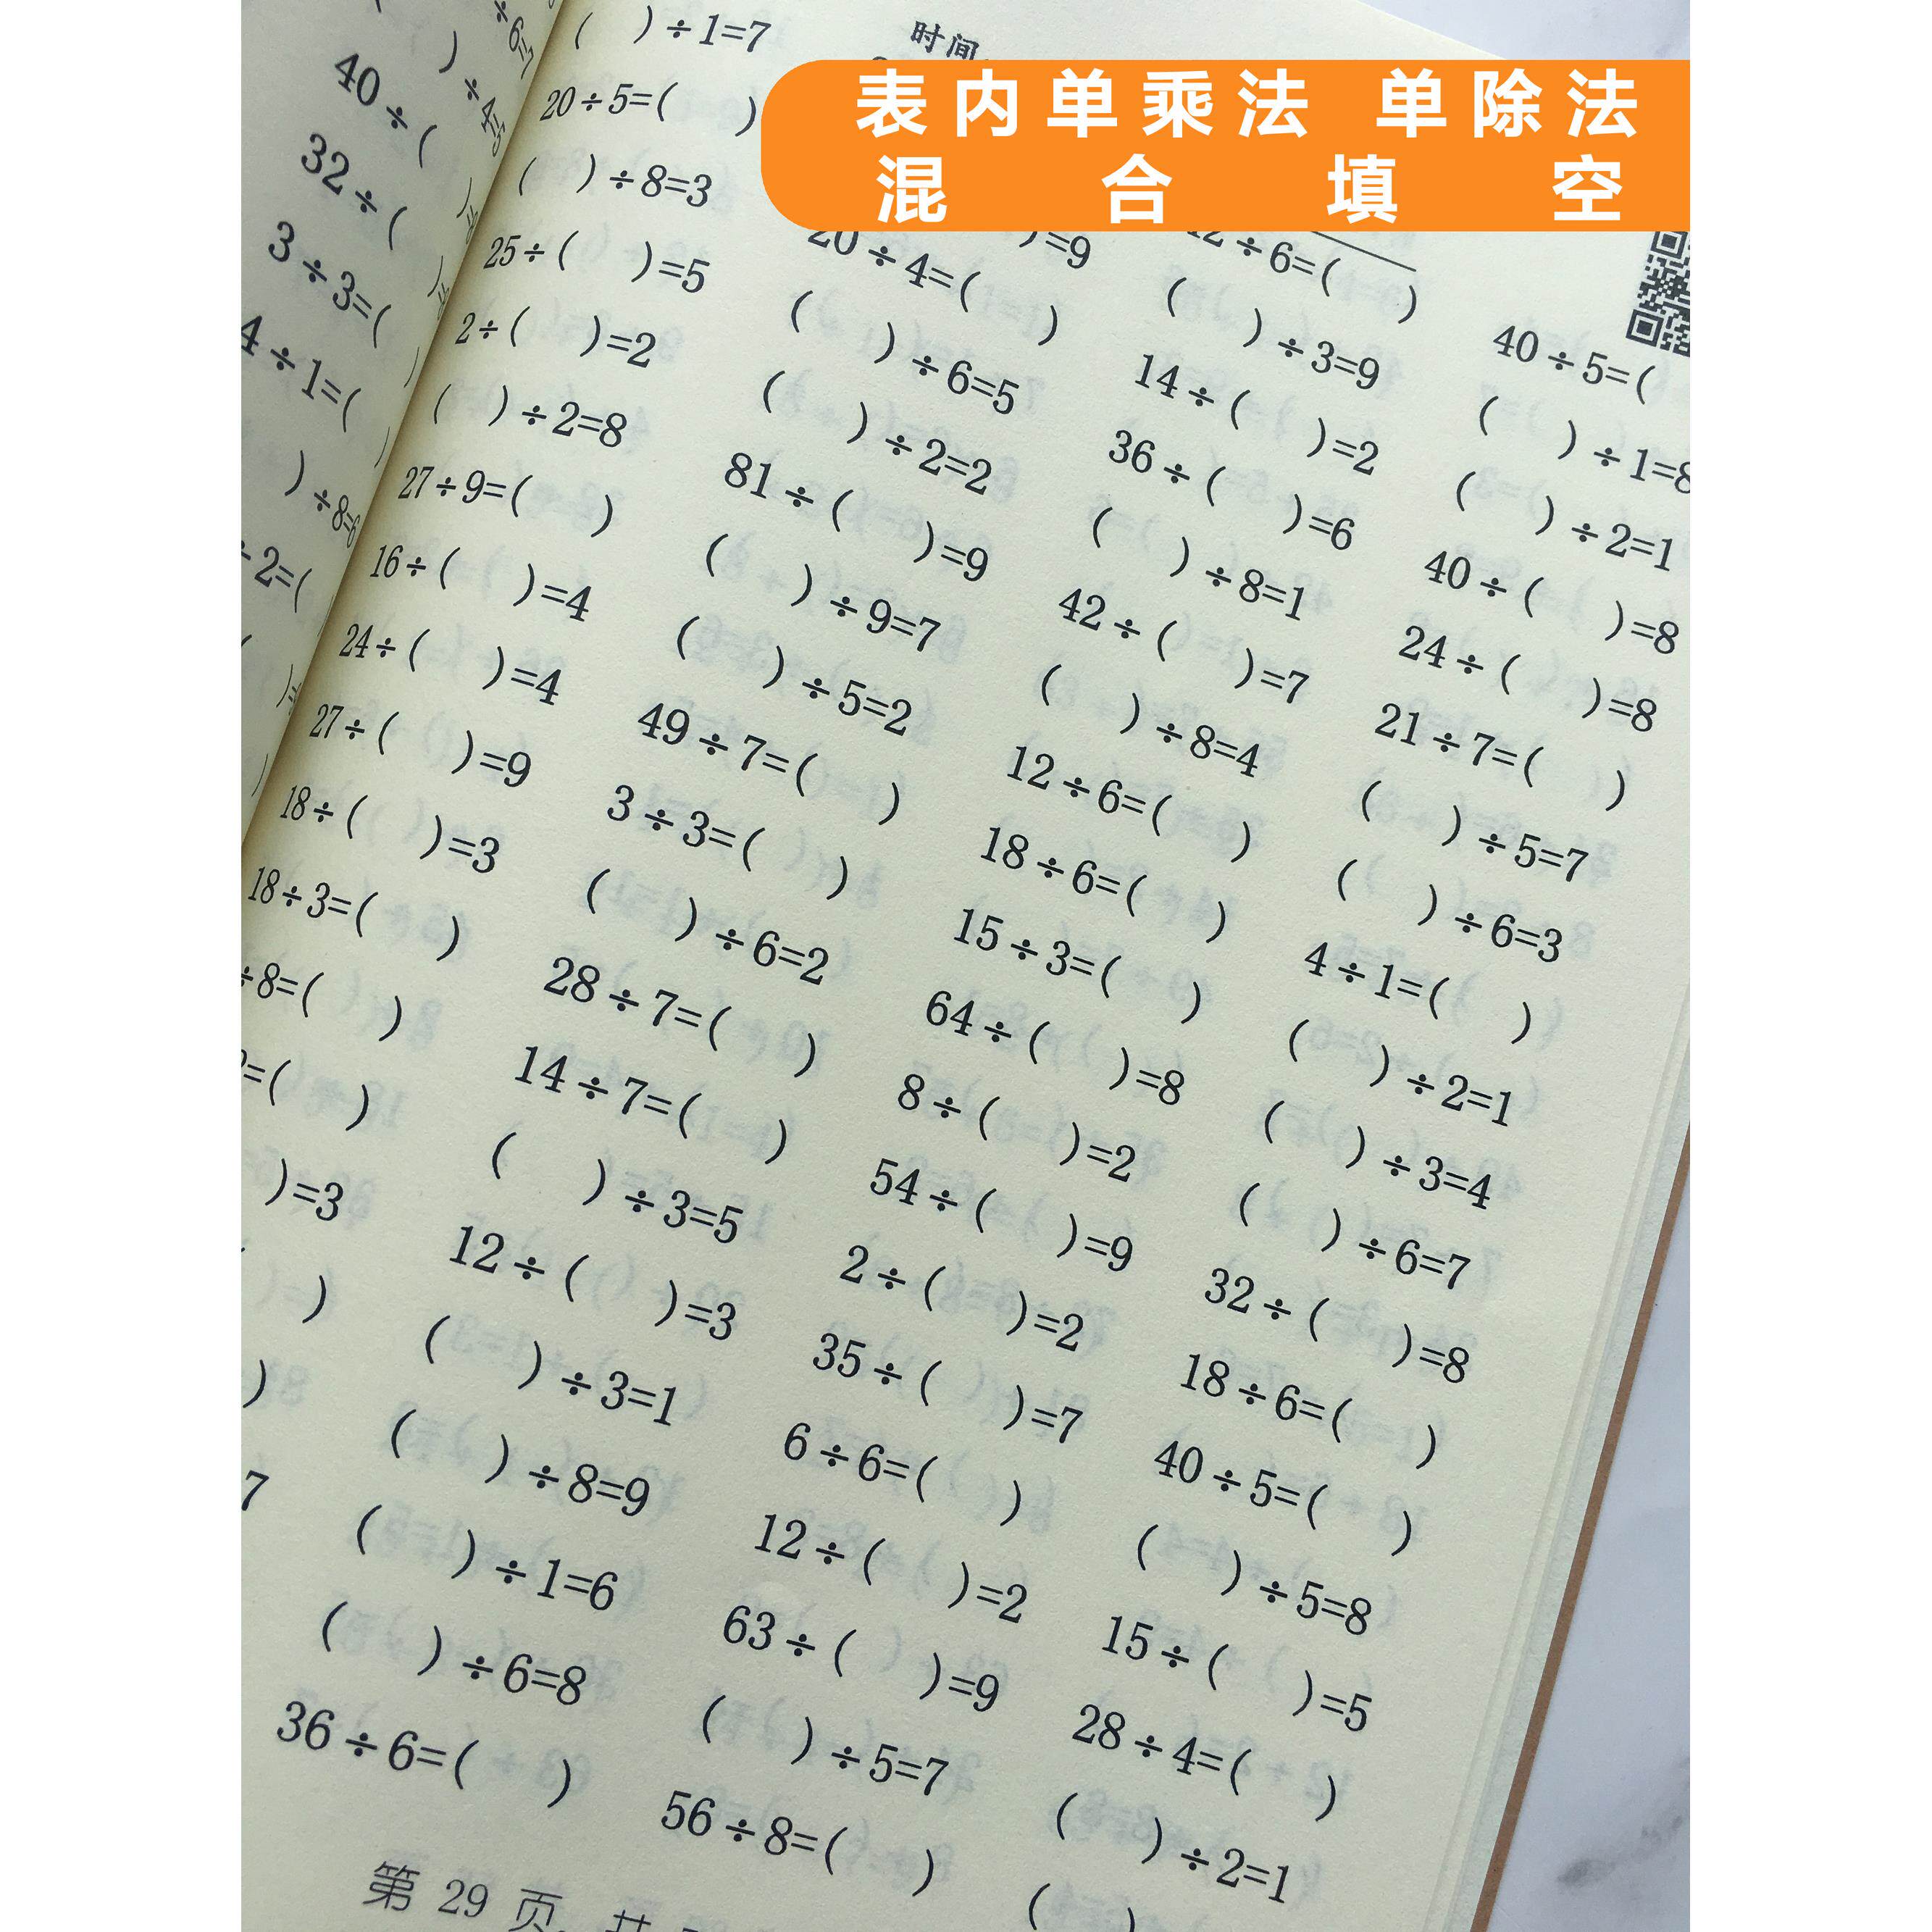 表内单乘法 单除法
混合填空
时间
÷6=7
)÷4=5
40÷(
32÷(
3÷3=(
4÷1=(
)÷8=6
÷2=(
( )÷1=7
20÷5=( )
( )÷8=3
25÷( )=5
2÷( )=2
( )÷2=8
27÷9=( )
16÷( )=4
24÷( )=4
27÷( )=9
18÷( )=3
18÷3=( )
÷8=( )
=( )
)=3
)
)
7
)=9
20÷4=( )
( )÷6=5
( )÷2=2
81÷( )=9
( )÷9=7
( )÷5=2
49÷7=( )
3÷3=( )
( )÷6=2
28÷7=( )
14÷7=( )
( )÷3=5
12÷( )=3
( )÷3=1
( )÷8=9
( )÷1=6
( )÷6=8
36÷6=( )
12÷6=( )
( )÷3=9
14÷( )=2
36÷( )=6
( )÷8=1
42÷( )=7
( )÷8=4
12÷6=( )
18÷6=( )
15÷3=( )
64÷( )=8
8÷( )=2
54÷( )=9
2÷( )=2
35÷( )=7
6÷6=( )
12÷( )=2
63÷( )=9
( )÷5=7
56÷8=( )
40÷5=(
( )÷1=8
( )÷2=1
40÷( )=8
24÷( )=8
21÷7=( )
( )÷5=7
( )÷6=3
4÷1=( )
( )÷2=1
( )÷3=4
( )÷6=7
32÷( )=8
18÷6=( )
40÷5=( )
( )÷5=8
15÷( )=5
28÷4=( )
( )÷2=1
( )
第 29 页,共